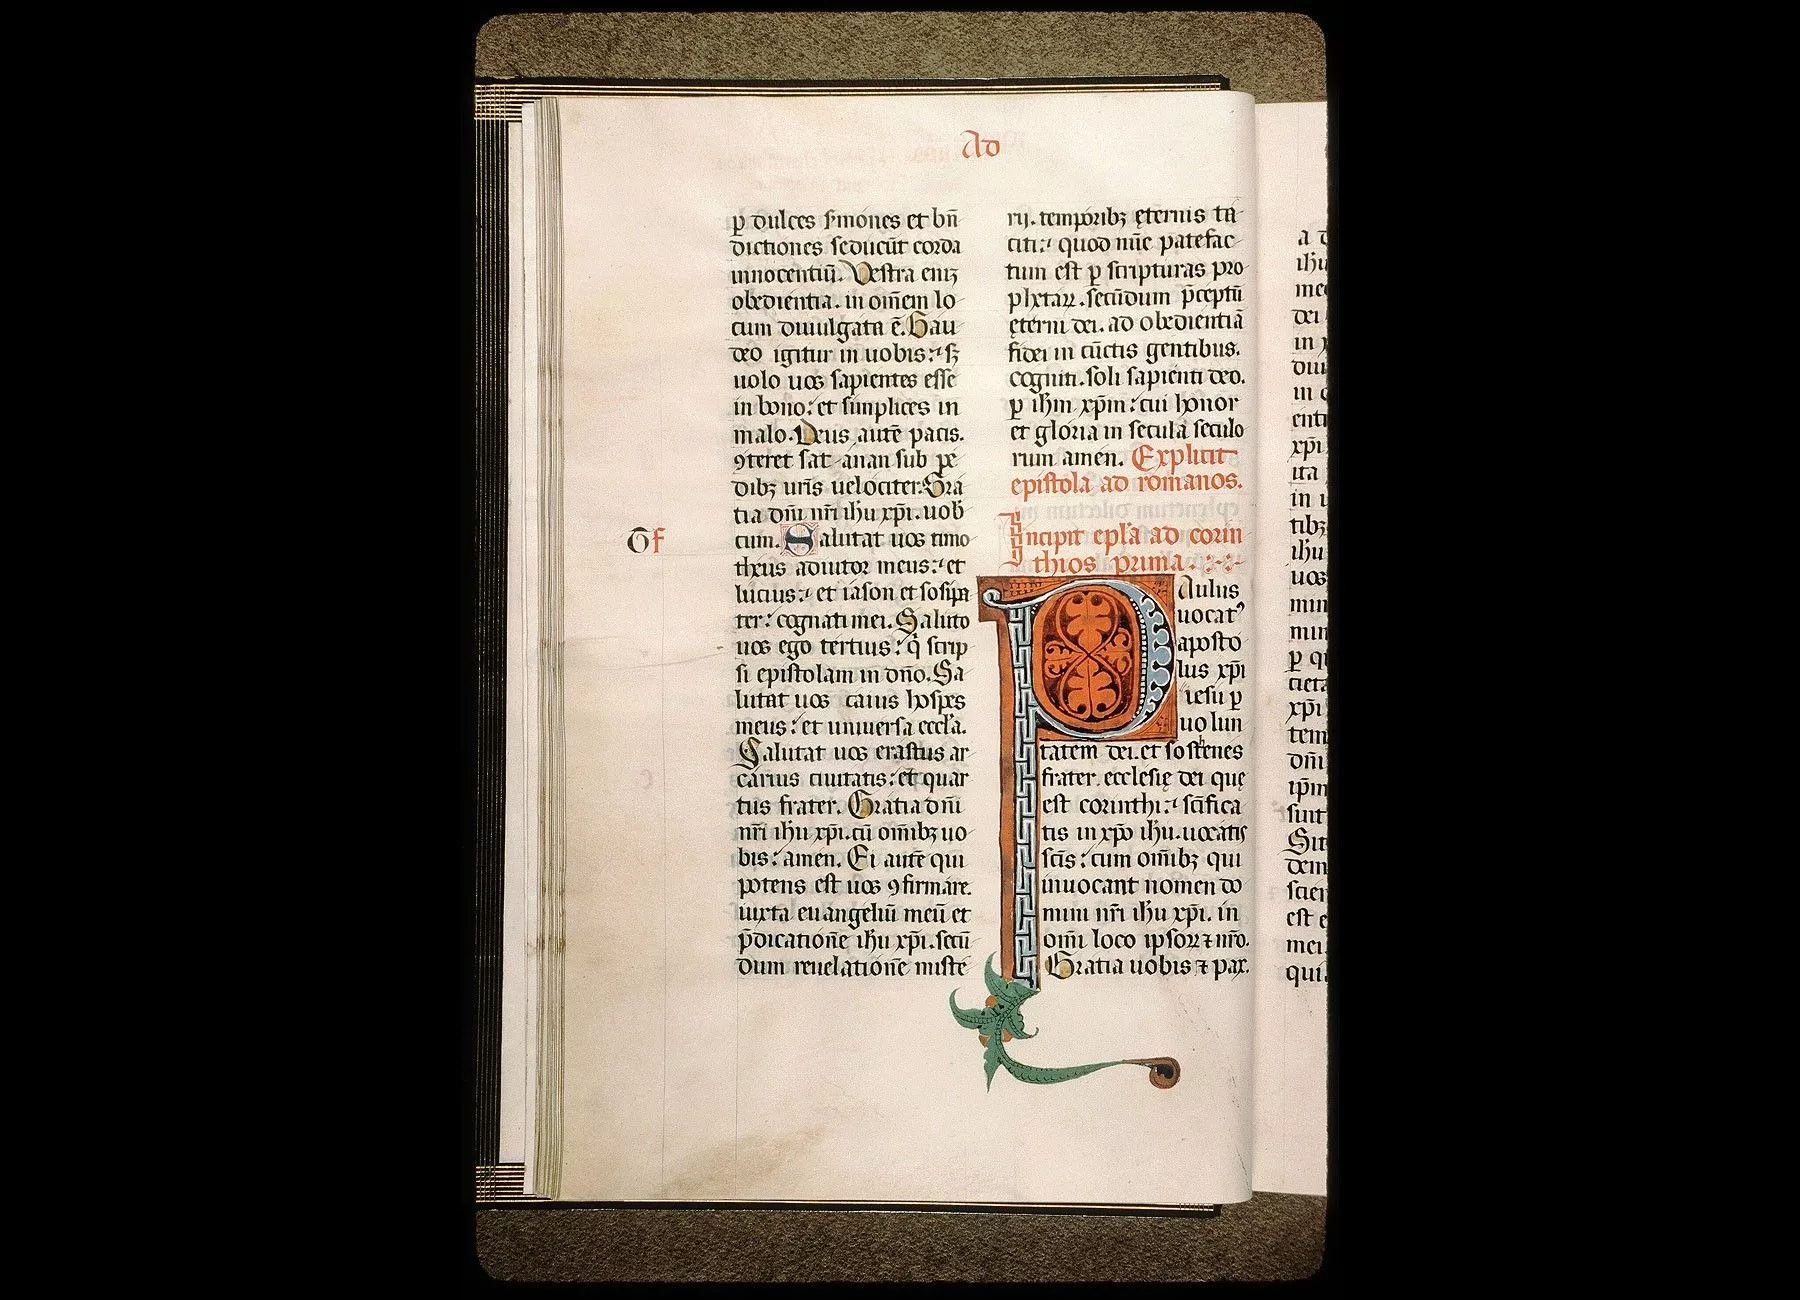 Ad
ꝑ dulces s̄mones et bn̄
dictiones seducūt corda
innocentiū. Vestra eniꝫ
obedientia. in om̄em lo
cum diuulgata ē. Gau
deo igitur in uobis: sꝫ
uolo uos sapientes esse
in bono: et simplices in
malo. Deus autē pacis.
ꝯteret sat anan sub pe
dibꝫ ur̄is uelociter. Gra
tia dn̄i nr̄i ih̄u xp̄i. uob
cum. Salutat uos timo
theus adiutor meus: et
lucius: et iason et sosipa
ter: cognati mei. Saluto
uos ego tertius: q̇ scrip
si epistolam in dn̄o. Sa
lutat uos caius hospes
meus: et uniuersa eccl̄a.
Salutat uos erastus ar
carius ciuitatis: et quar
tus frater. Gratia dn̄i
nr̄i ih̄u xp̄i. cū om̄ibꝫ uo
bis: amen. Ei autē qui
potens est uos ꝯfirmare.
iuxta euangeliū meū et
p̄dicationē ih̄u xp̄i. secū
dum reuelationē miste
rij. temporibꝫ ęternis ta
citi: quod nūc patefac
tum est ꝑ scripturas pro
phetaꝝ. secūdum p̄ceptū
ęterni dei. ad obedientiā
fidei in cūctis gentibus.
cogniti. soli sapienti deo.
ꝑ ih̄m xp̄m: cui honor
et gloria in secula seculo
rum amen. Explicit
epistola ad romanos.
Incipit epl̄a ad corin
thios prima.
Paulus
uocatꝰ
aposto
lus xp̄i
iesu ꝑ
uolun
tatem dei. et sostenes
frater. ecclesię dei quę
est corinthi: sc̄ifica
tis in xp̄o ih̄u. uocatis
sc̄is: cum om̄ibꝫ qui
inuocant nomen do
mini nr̄i ih̄u xp̄i. in
om̄i loco ipsoꝝ ⁊ nr̄o.
Gratia uobis ⁊ pax.
ih̄u
dei
xp̄i
ita
ih̄u
uos
xp̄i
tem
dn̄i
sunt
mei.
qui